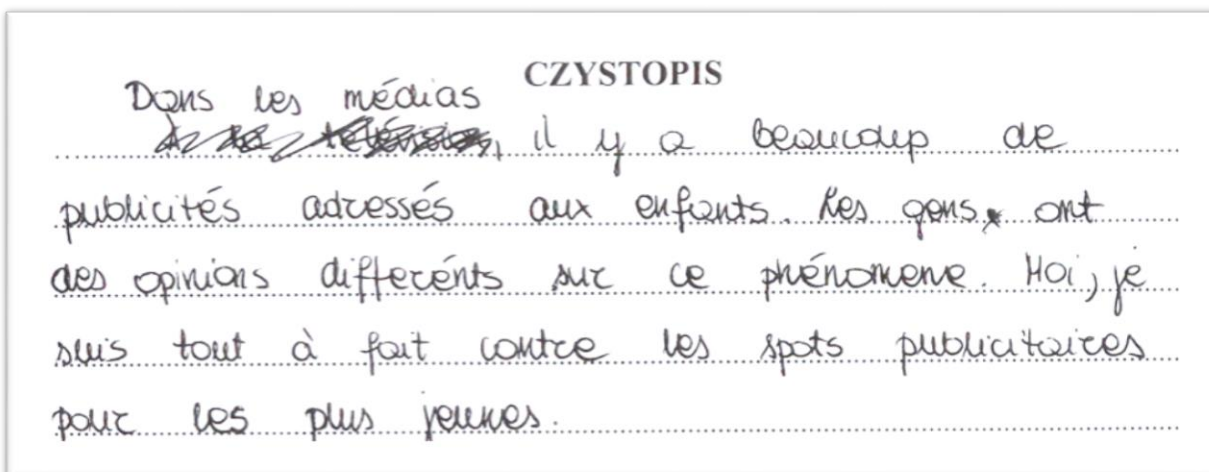 CZYSTOPIS
Dans les médias
il y a beaucoup de
publicités adressés aux enfants. Les gens ont
des opinions différents sur ce phénomene. Moi, je
suis tout à fait contre les spots publicitaires
pour les plus jeunes.